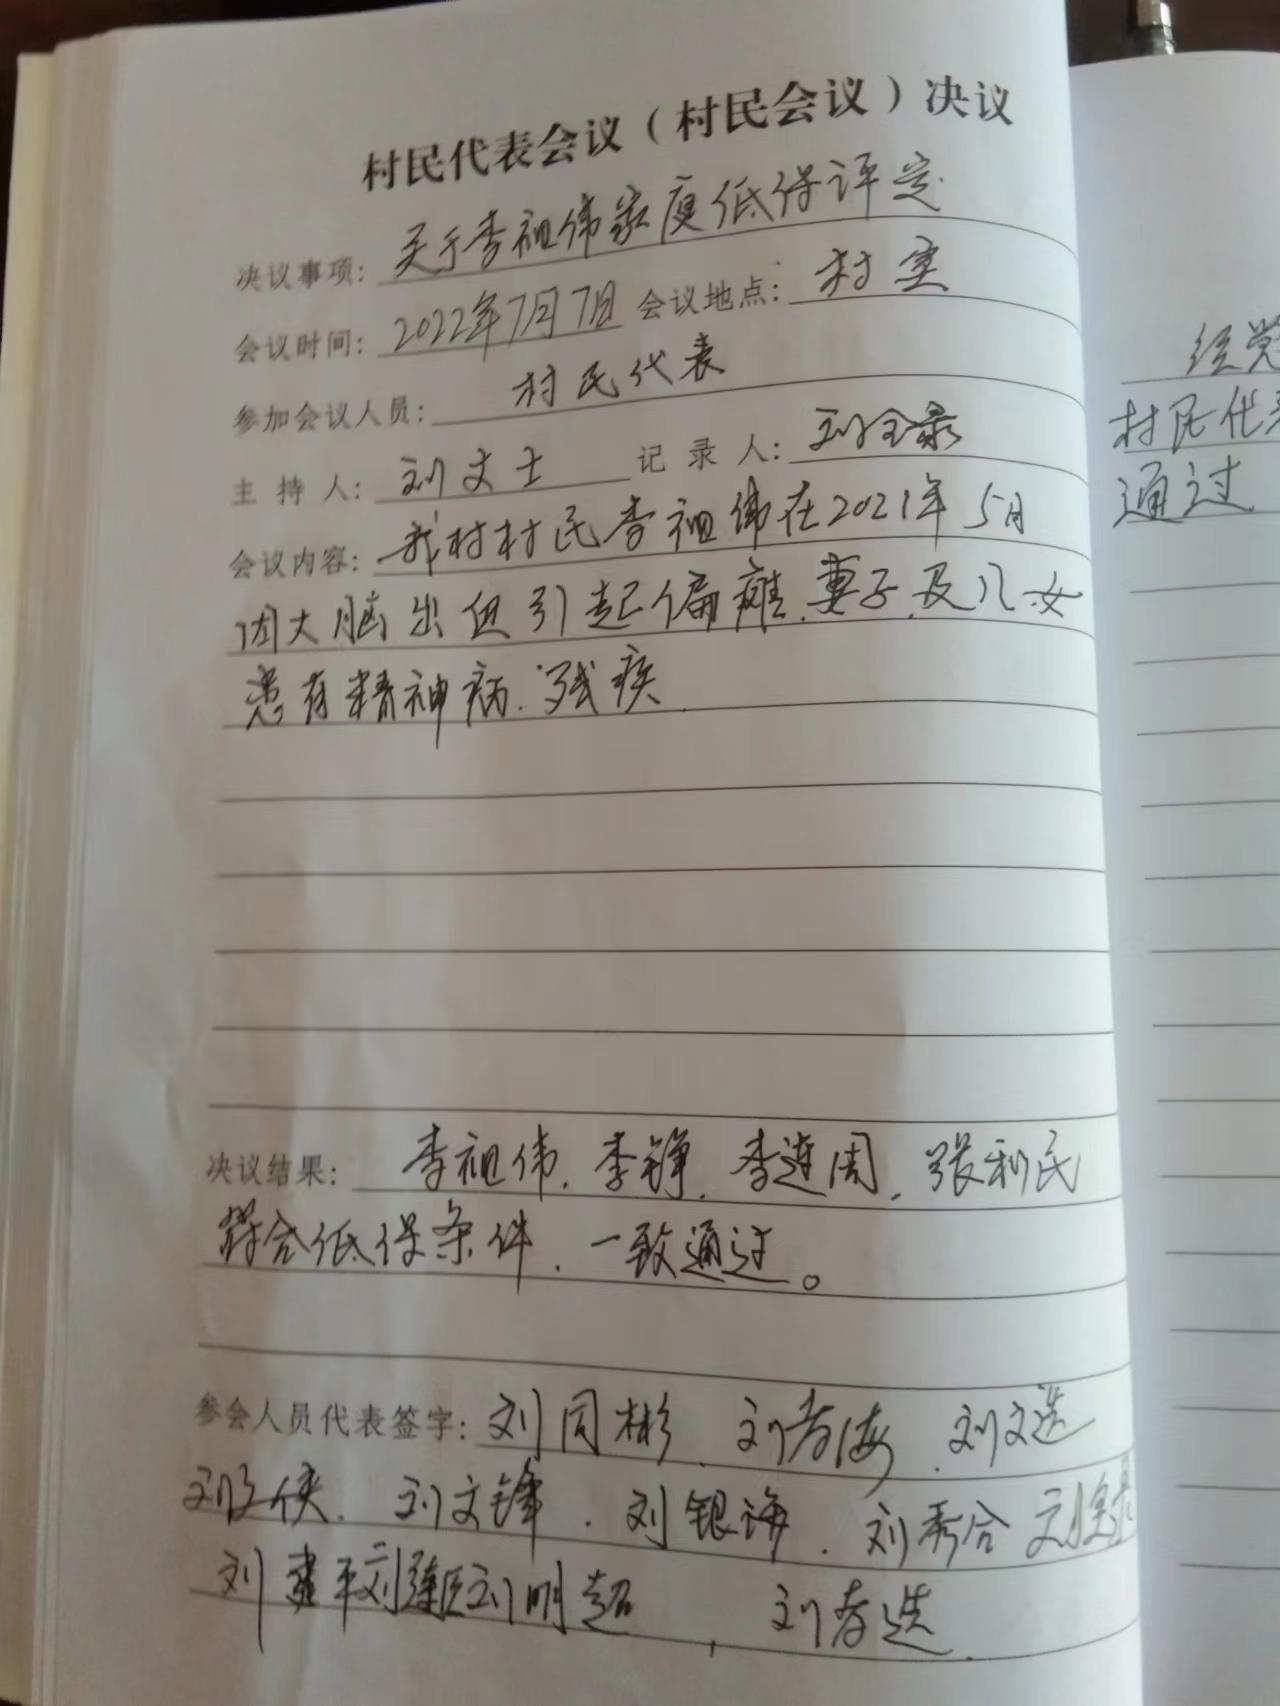 村民代表会议（村民会议）决议
决议事项：关于李祖伟家庭低保评定
会议时间：2022年7月7日 会议地点：村室
参加会议人员：村民代表
主持人：刘文士 记录人：刘全录
会议内容：我村村民李祖伟在2021年5月
因大脑出血引起偏瘫、妻子及儿女
患有精神病、残疾
决议结果：李祖伟、李铮、李连周、张利民
符合低保条件、一致通过。
参会人员代表签字：刘同彬、刘春海、刘文选
侠、刘文锋、刘银海、刘秀合 刘全录
刘建平 刘 刘明超，刘春选
经党
村民代表
通过